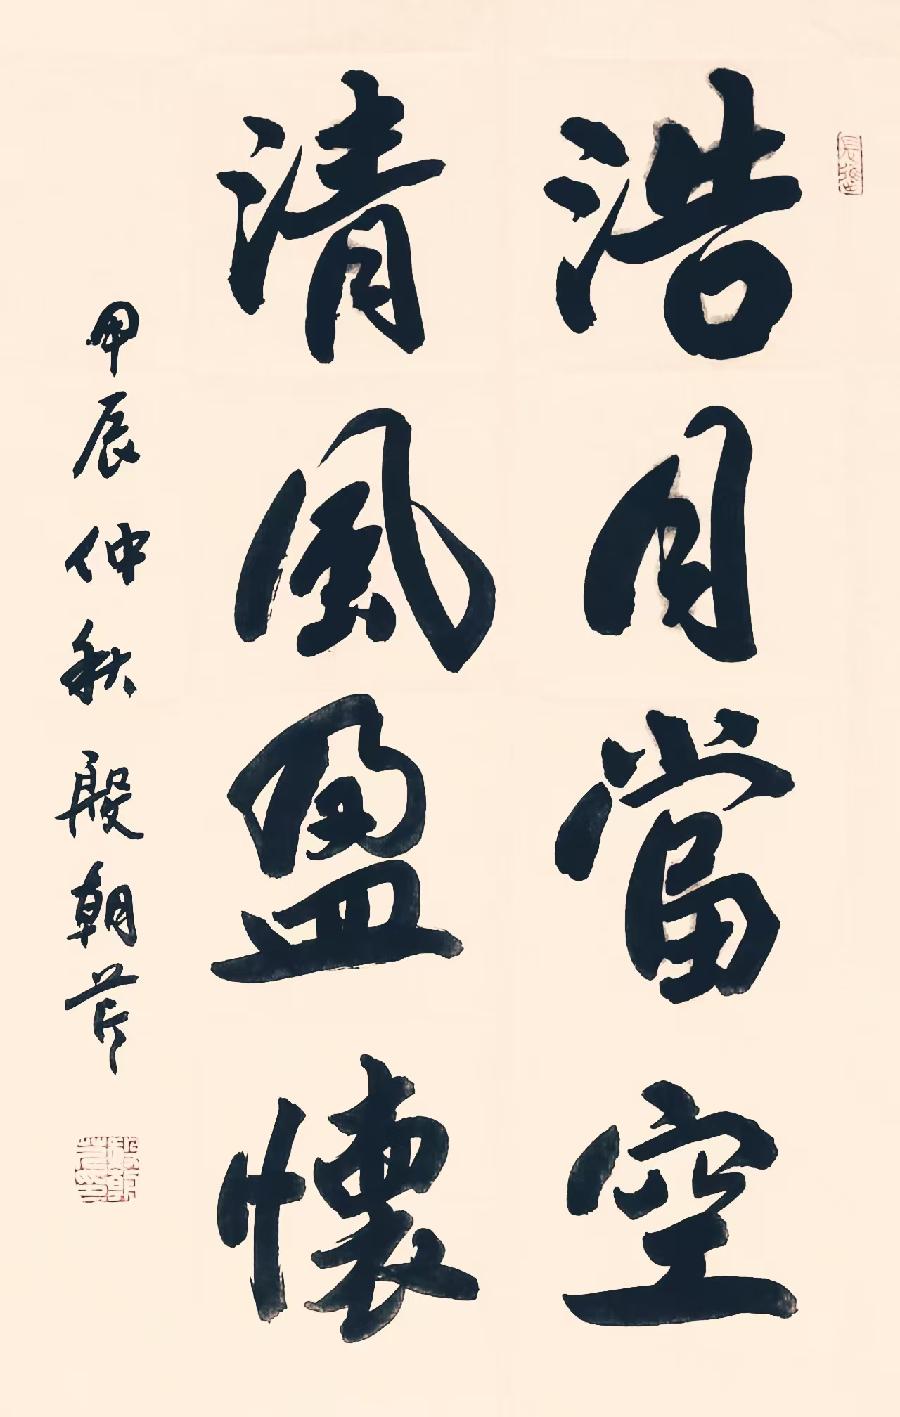 浩月當空
清風盈懷
甲辰仲秋殷朝芹